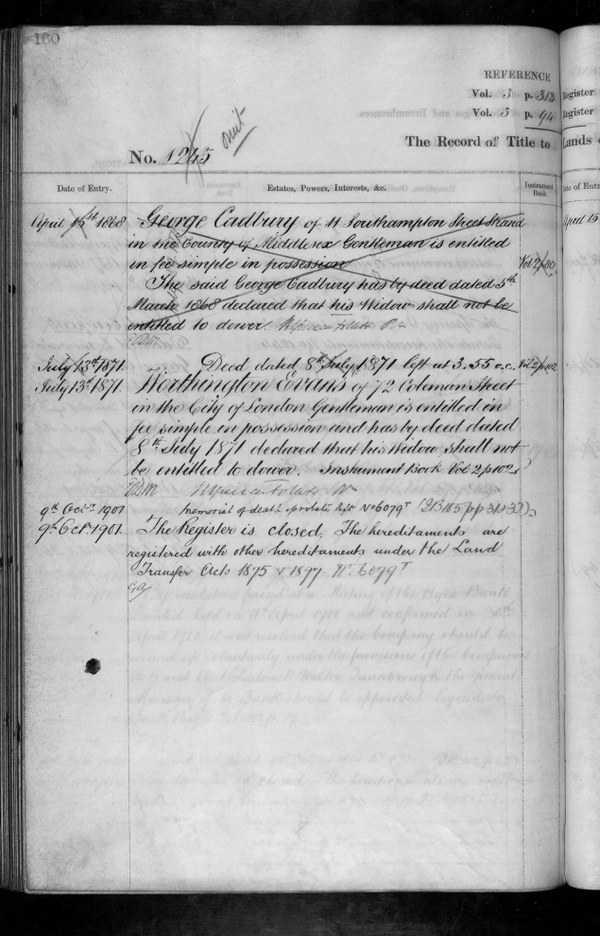 160
REFERENCE
Vol. 3 p. 313
Vol. 3 p. 94
Register
Register
omit
No. 1245
The Record of Title to
Lands
Date of Entry.
Estates, Powers, Interests, &c.
Instrument Book.
Date of Entry
April 15th 1868
George Cadbury of 11 Southampton Street Strand
April 15
in the County of Middlesex Gentleman is entitled
in fee simple in possession
Vol 2 p 30
The said George Cadbury has by deed dated 5th
March 1868 declared that his Widow shall not be
entitled to dower.
July 13th 1871
Deed dated 8th July 1871 left at 3.55 o.c.
Vol 2 p 102
July 13th 1871.
Worthington Evans of 72 Coleman Street
in the City of London Gentleman is entitled in
fee simple in possession and has by deed dated
8th July 1871 declared that his Widow shall not
be entitled to dower. Instrument Book Vol. 2 p 102
9th Octr 1901
memorial of death & probate No 6079T
9th Octr 1901.
The Register is closed. The hereditaments are
registered with other hereditaments under the Land
Transfer Acts 1875 & 1897 No. 6079T